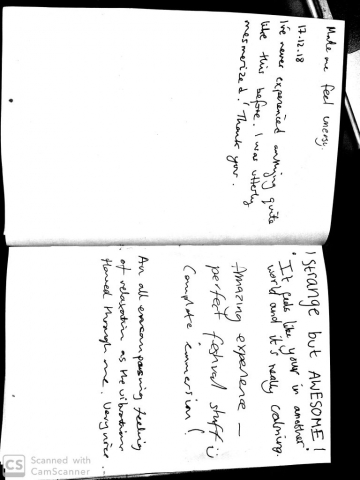 Made me feel energy.
17.12.18
I've never experienced anything quite
like this before. I was utterly
mesmerized! Thank you.
! Strange but AWESOME!
"It feels like your in another
world and it's really calming."
Amazing experience –
perfect festival stuff ü
Complete immersion!
An all encompassing feeling
of relaxation as the vibrations
flowed through me. Very nice ..
CS Scanned with
CamScanner